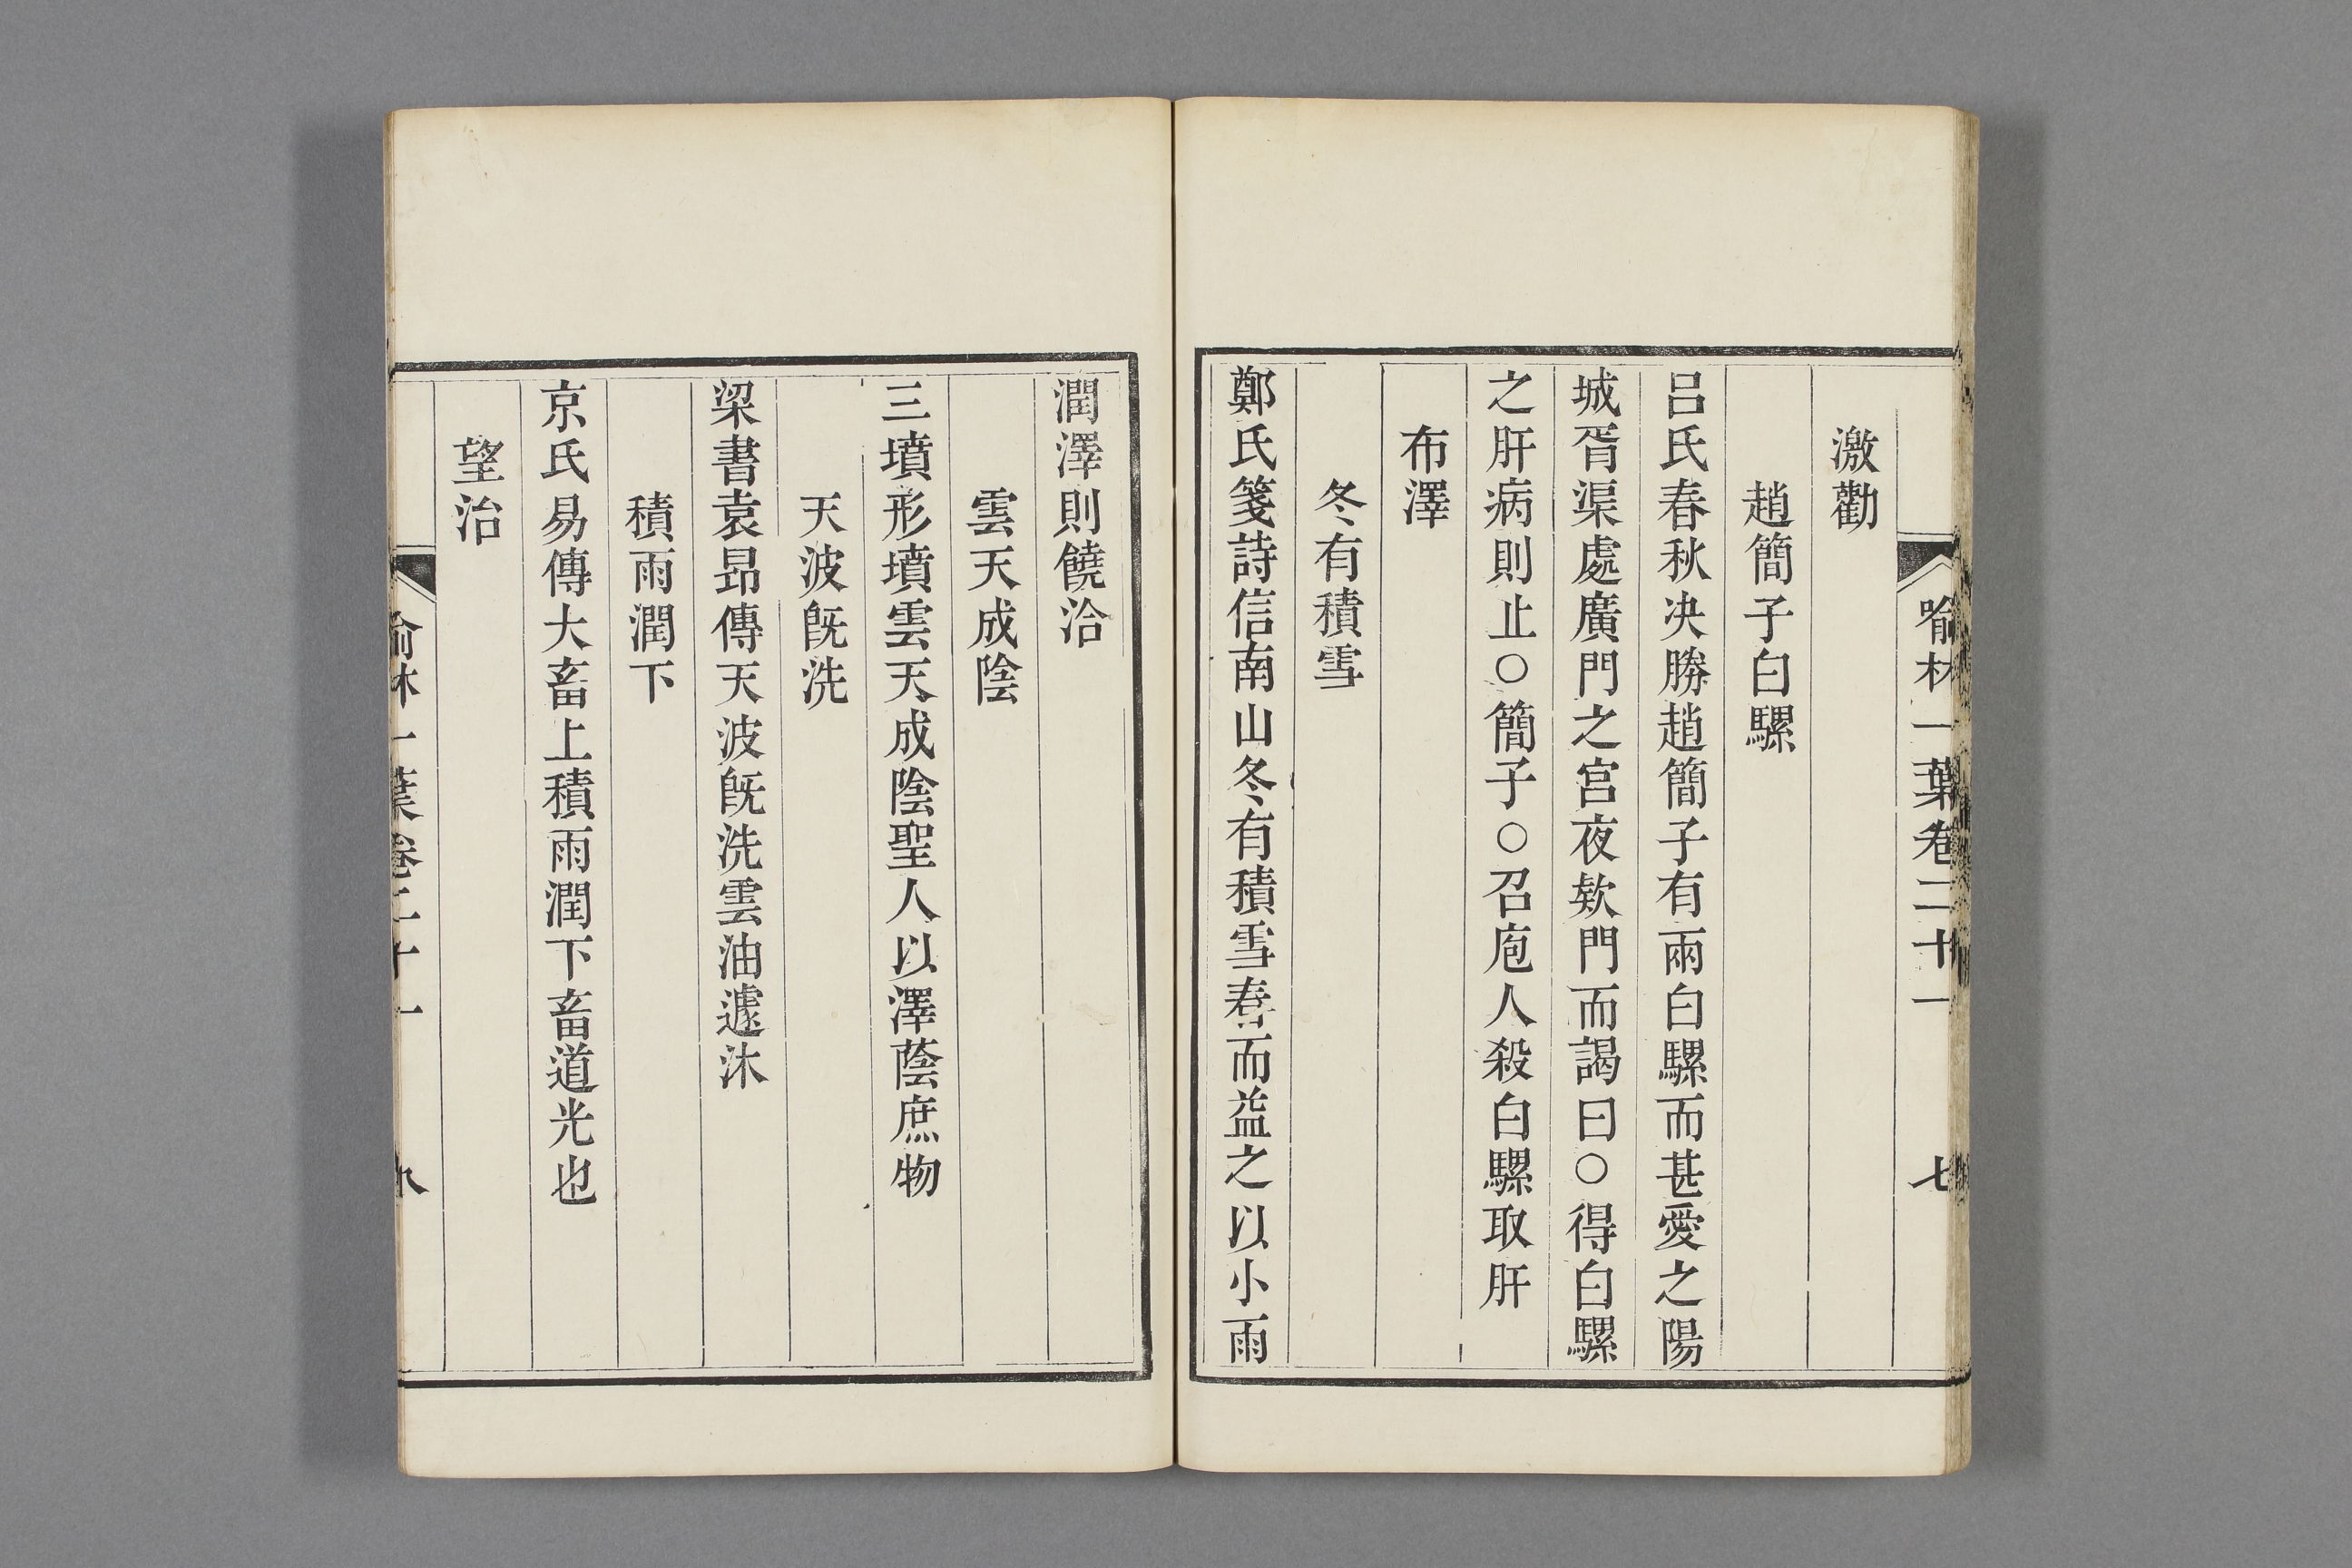 喻林一葉卷二十一 七
激勸
趙簡子白騾
呂氏春秋决勝趙簡子有兩白騾而甚愛之陽
城胥渠處廣門之宮夜欵門而謁曰○得白騾
之肝病則止○簡子○召庖人殺白騾取肝
布澤
冬有積雪
鄭氏箋詩信南山冬有積雪春而益之以小雨
潤澤則饒洽
雲天成陰
三墳形墳雲天成陰聖人以澤蔭庶物
天波旣洗
梁書袁昂傳天波旣洗雲油遽沐
積雨潤下
京氏易傳大畜上積雨潤下畜道光也
望治
喻林一葉卷二十一